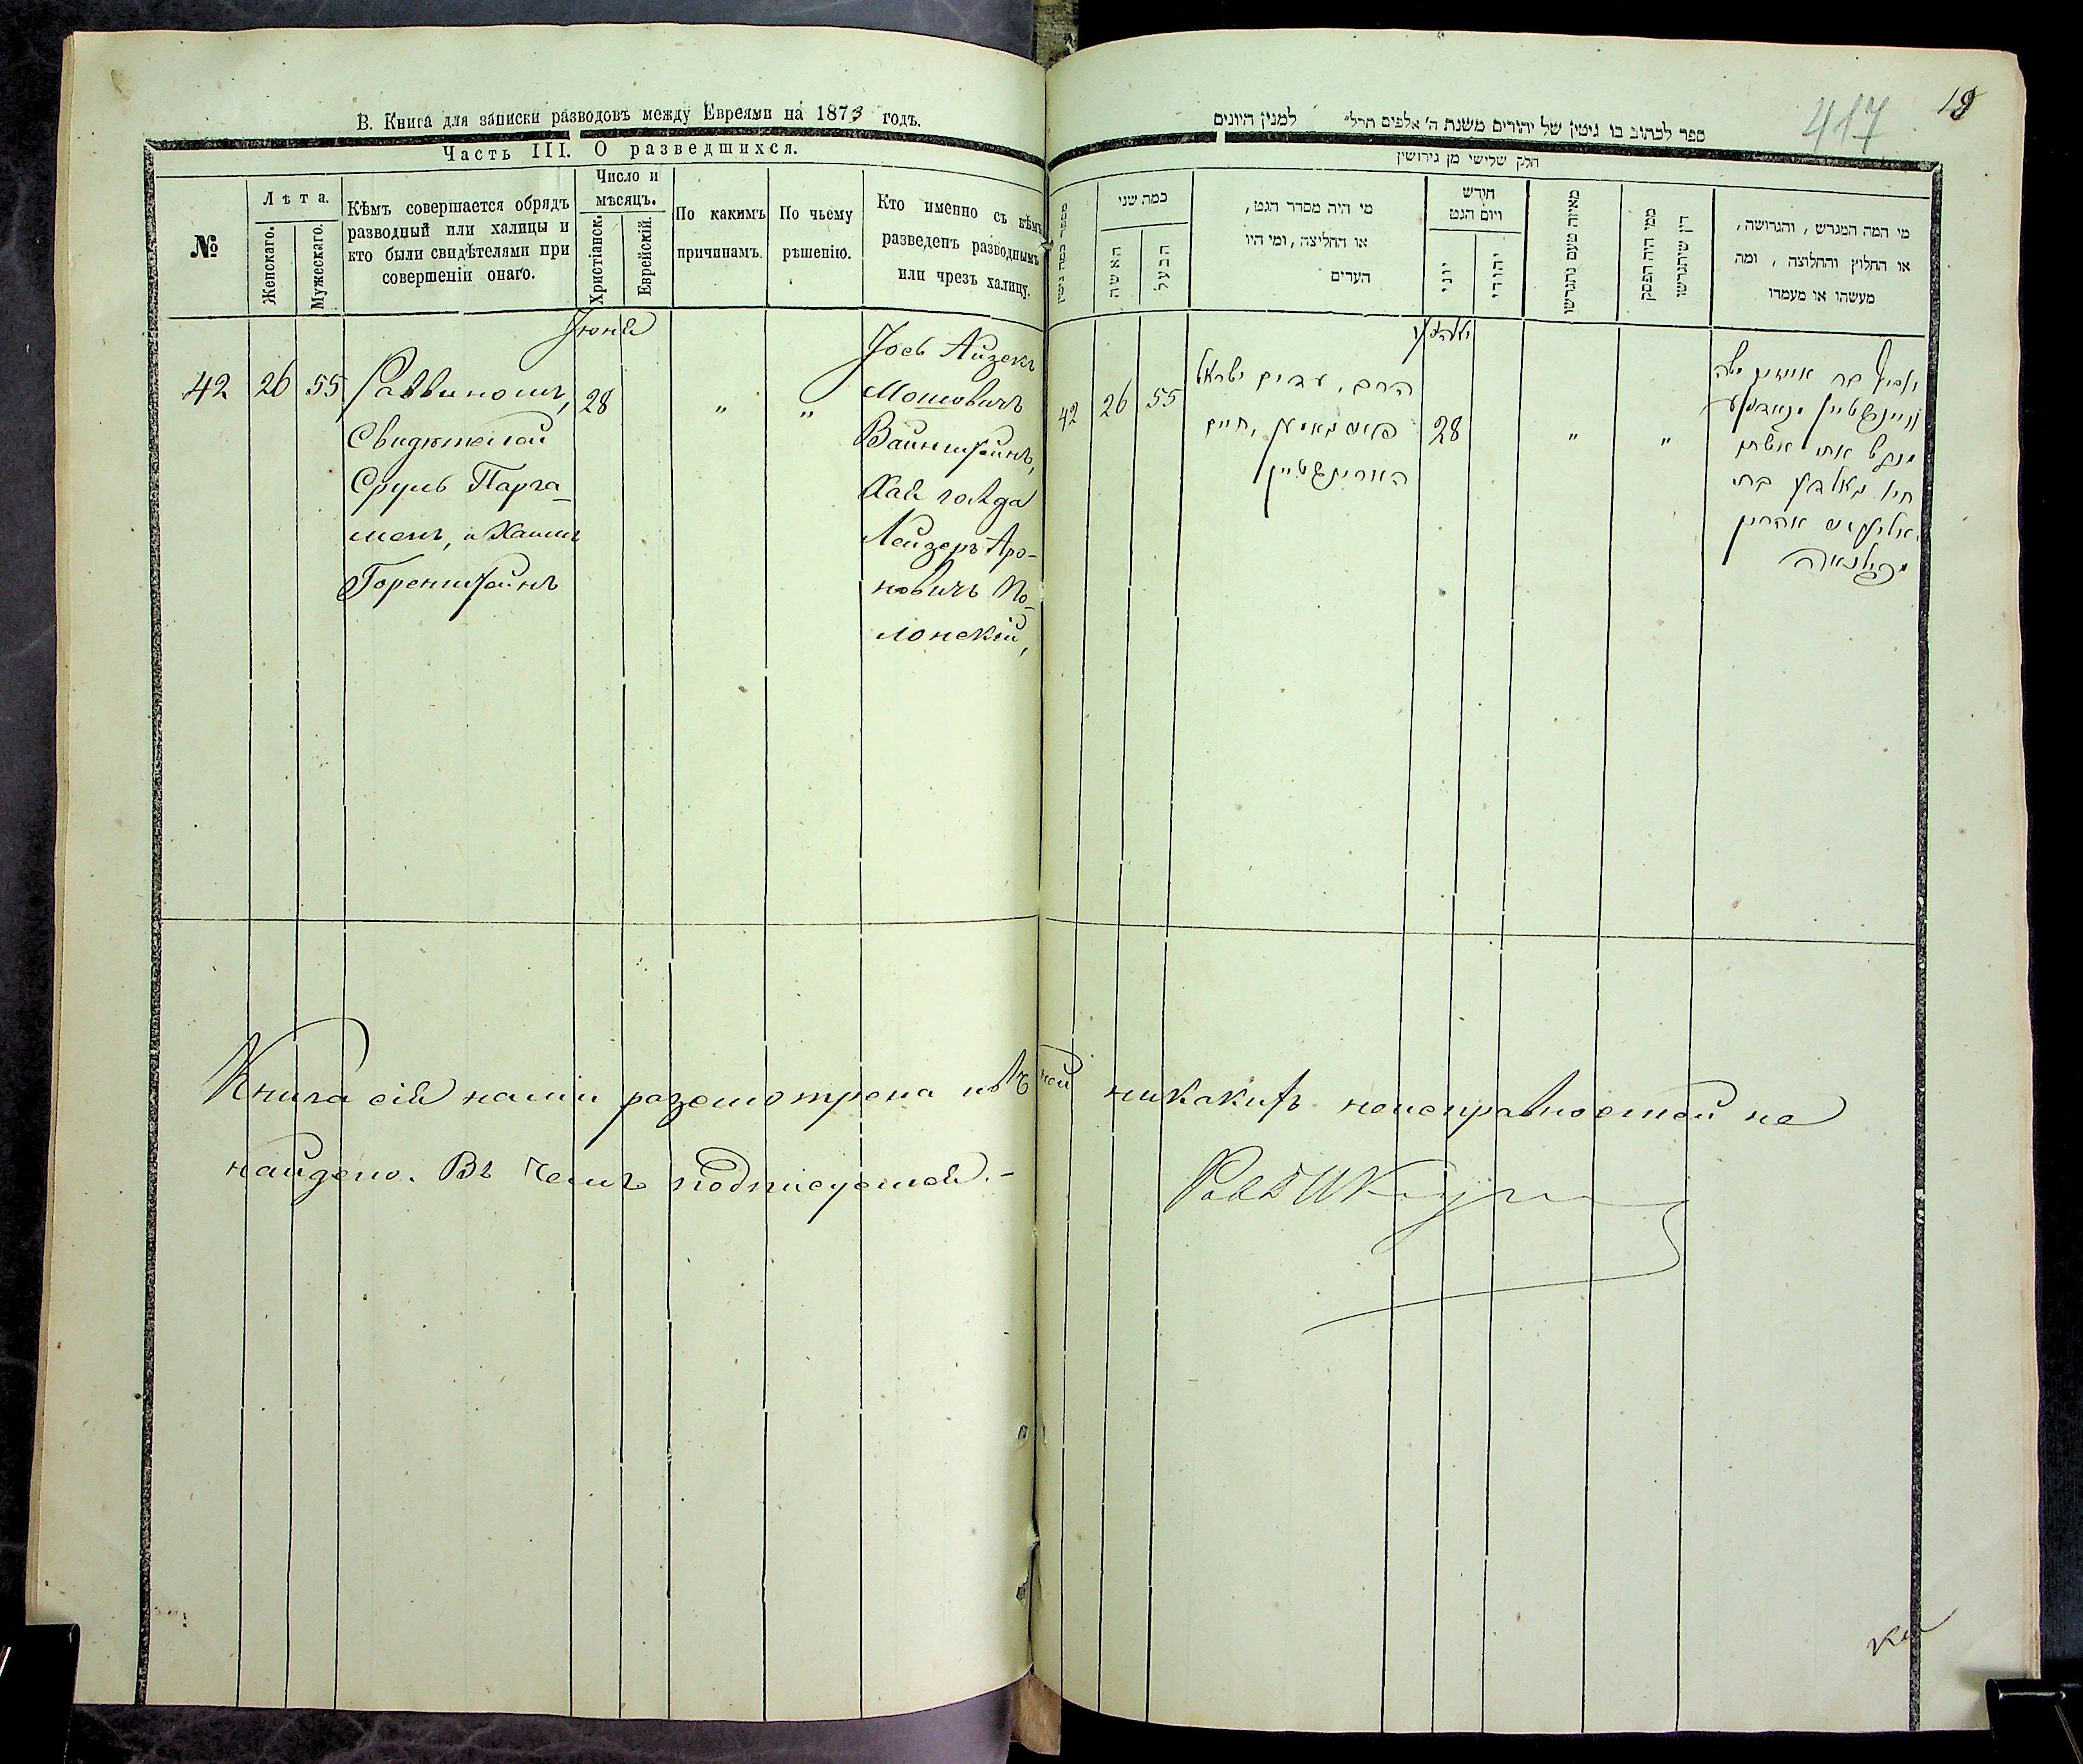 В. Книга для записки разводовъ между Евреями на 1873 годъ.
Часть III. О разведшихся.
№
Лѣта.
Женскаго.
Мужескаго.
Кѣмъ совершается обрядъ
разводный или халицы и
кто были свидѣтелями при
совершеніи онаго.
Число и
мѣсяцъ.
Христіанск.
Еврейскій.
По какимъ
причинамъ.
По чьему
рѣшенію.
Кто именно съ кѣмъ
разведенъ разводнымъ
или чрезъ халицу.
Іюня
42 26 55 Раввиномъ, 28 " "
Свидѣтелей
Сруль Парга-
менъ, и Хаимъ
Горенштейнъ
Іосъ Айзекъ
Мошовичъ
Вайнштейнъ,
Хая голда
Лейзеръ Аро-
новичъ По-
лонскій,
417
19
ספר לכתוב בו גיטין של יהודים משנת ה' אלפים תרל" למנין היונים
חלק שלישי מן גירושין
מספר כמה גיטין
כמה שני
האשה
הבעל
מי היה מסדר הגט,
או החליצה, ומי היו
העדים
חודש
ויום הגט
יוני
יהודי
מאיזה טעם נתגרשו
ממי היה הפסק
דין שיתגרשו
מי המה המגרש, והגרושה,
או החלוץ והחלוצה, ומה
מעשהו או מעמדו
42 26 55
הרב, עדים ישראל
חיים
הארינשטיין
28 " "
איזיק משה
וויינשטיין
את אשתו
חיה גאלדע בת
אהרון
Книга сія нами разсмотрена и въ ней никакихъ неисправностей не
найдено. Въ чемъ подписуемся.-